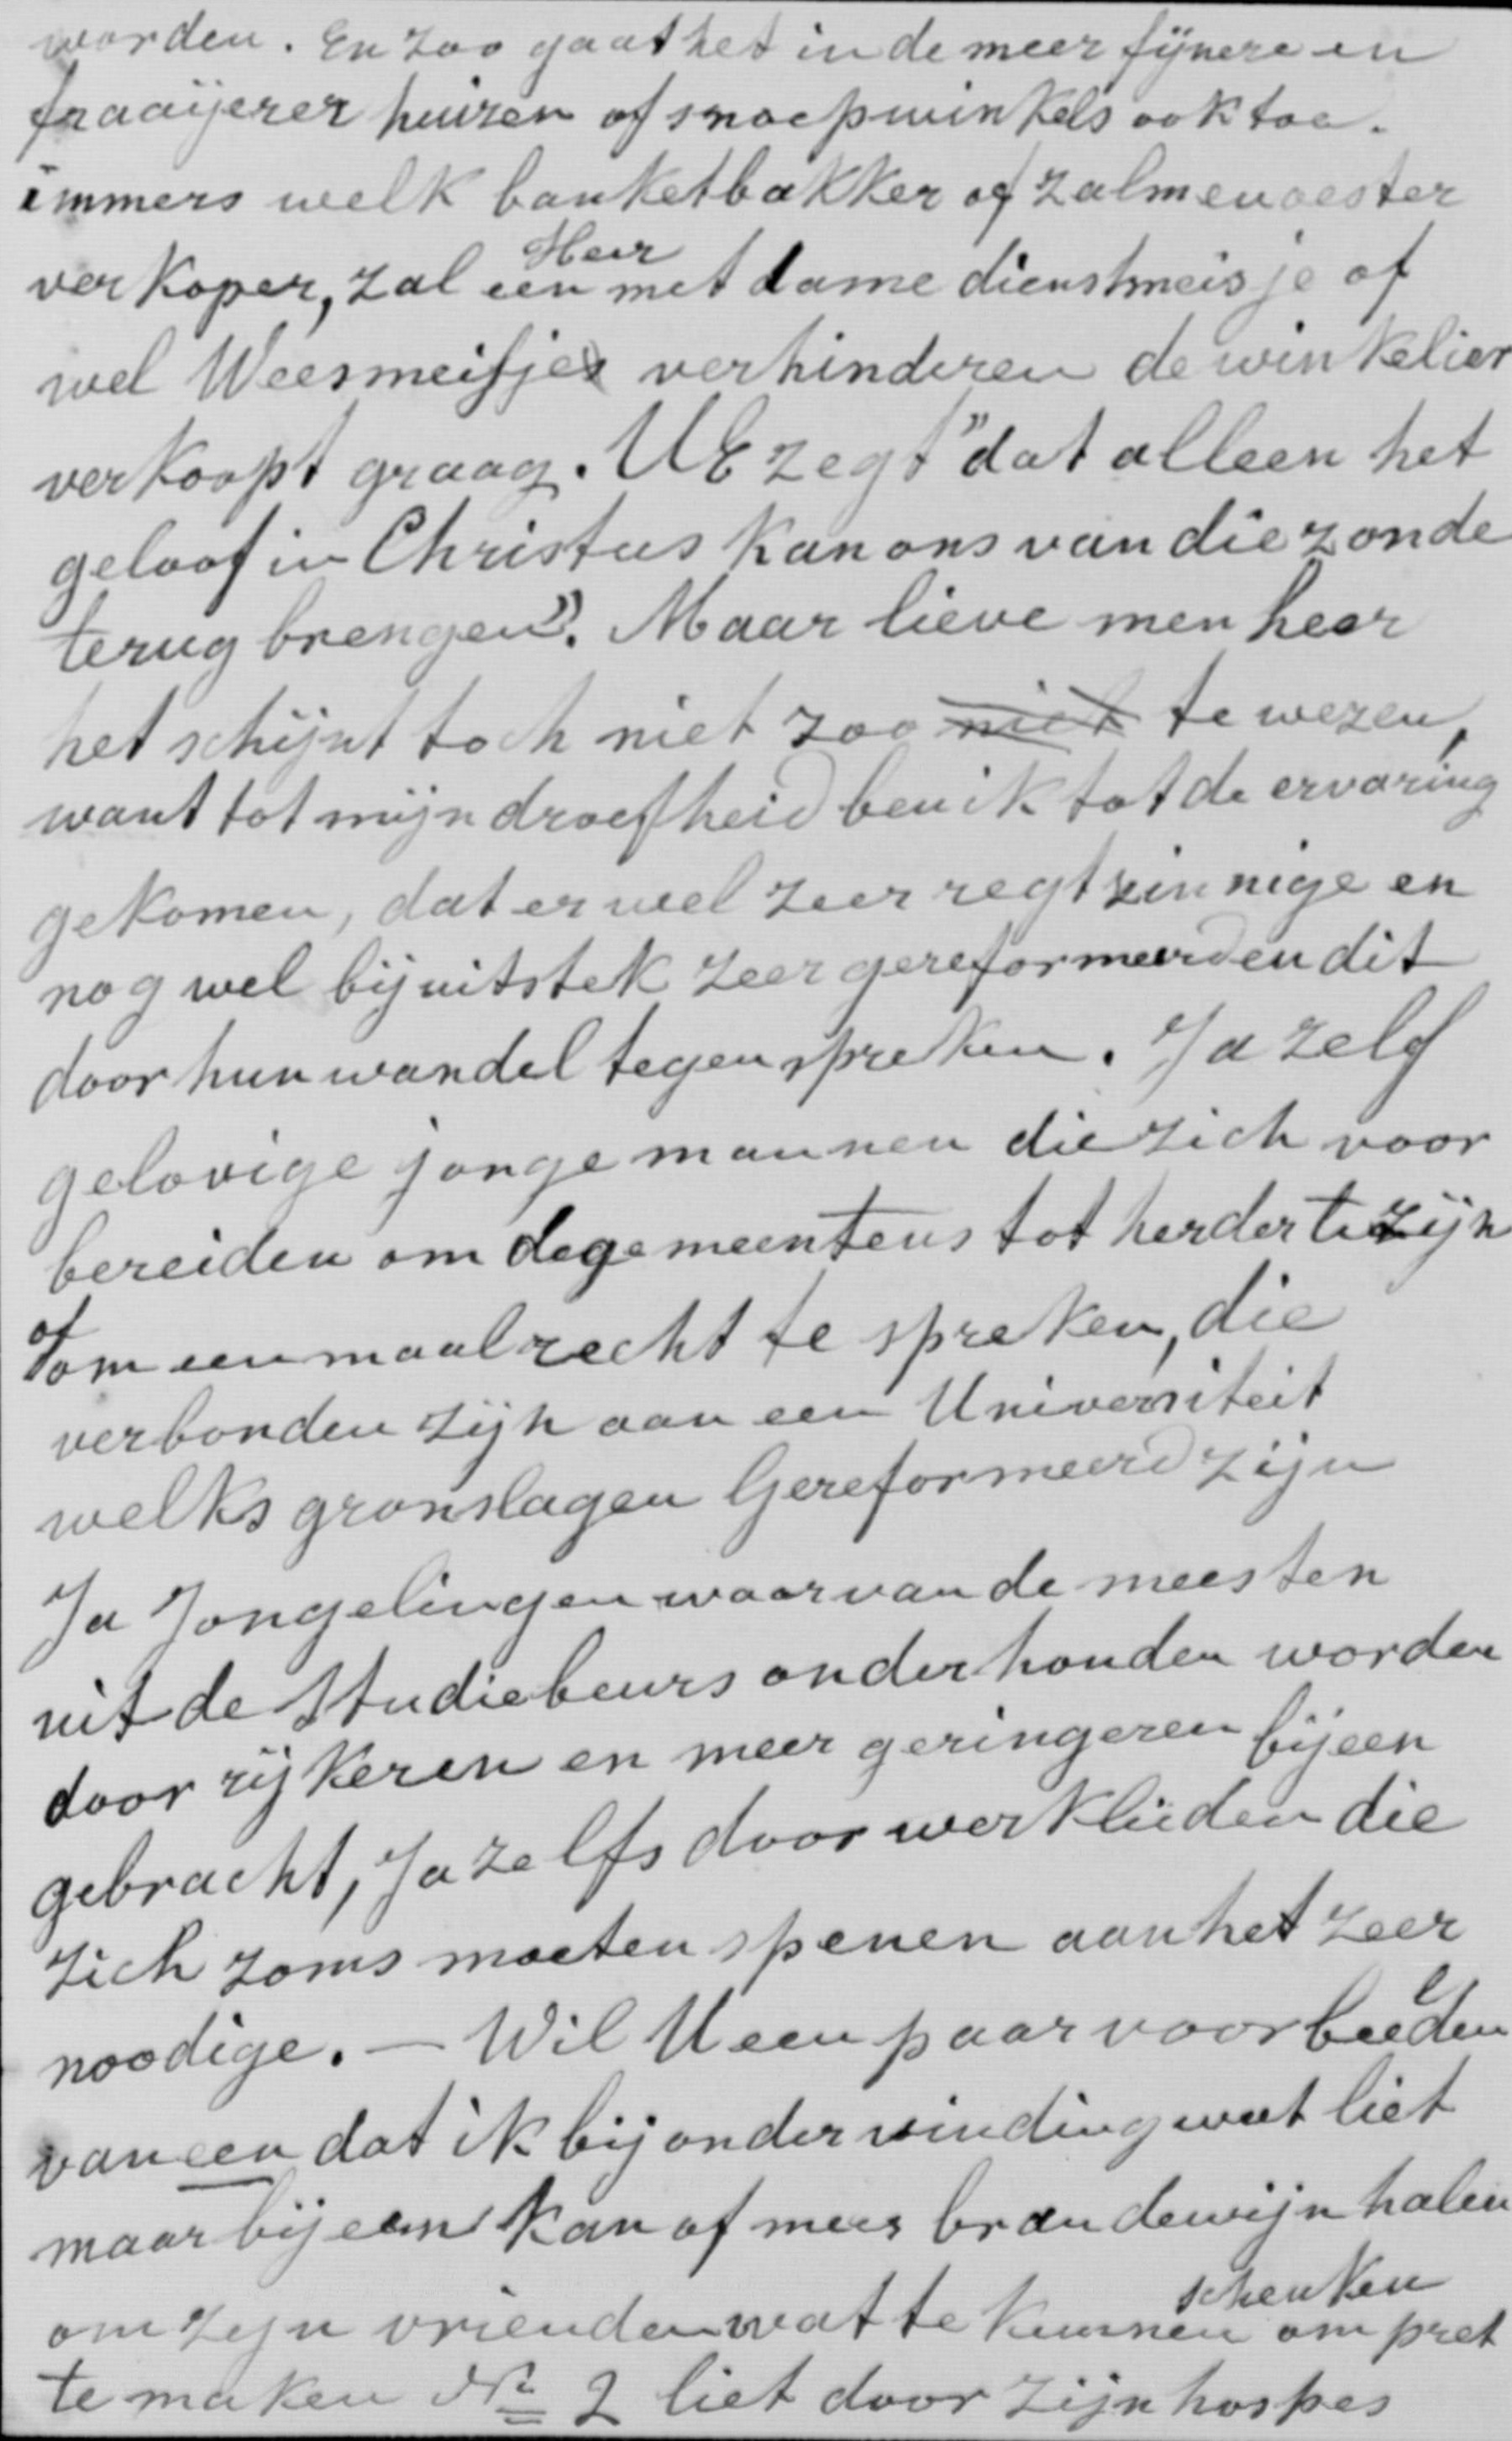 worden. En zoo gaat het in de meer fijnere en
fraaijerer huizen of snoepwinkels ook toe.
immers welk banketbakker of zalm en oester
verkoper, zal een Heer met dame dienstmeisje of
wel Weesmeisjes verhinderen de winkelier
verkoopt graag. UE zegt "dat alleen het
geloof in Christus kan ons van die zonde
terug brengen". Maar lieve men heer
het schijnt toch niet zoo niet te wezen,
want tot mijn droefheid ben ik tot de ervaring
gekomen, dat er wel zeer regtzinnige en
nog wel bij uitstek zeer gereformeerden dit
door hun wandel tegenspreken. Ja zelf
gelovige jonge mannen die zich voor
bereiden om de gemeentens tot herder te zijn
of om eenmaal recht te spreken, die
verbonden zijn aan een Universiteit
welks gronslagen Gereformeerd zijn
Ja Jongelingen waarvan de meesten
uit de Studiebeurs onderhouden worden
door rijkeren en meer geringeren bijeen
gebracht, Ja zelfs door werklieden die
zich zoms moeten spenen aan het zeer
noodige. — Wil U een paar voorbeelden
van een dat ik bij ondervinding weet liet
maar bij een kan of meer brandewijn halen
om zijn vrienden wat te kunnen schenken om pret
te maken No 2 liet door zijn hospes